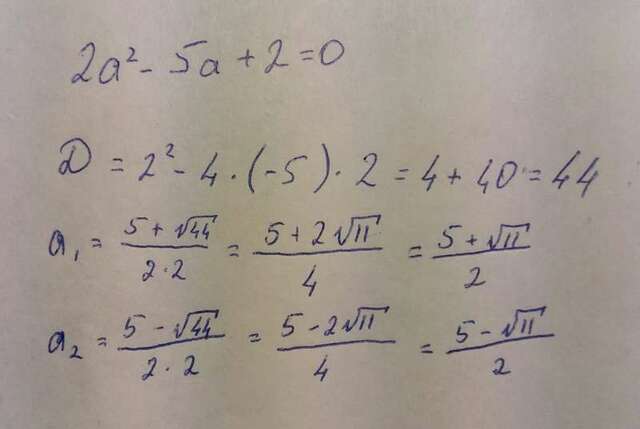 2a² - 5a + 2 = 0
D = 2² - 4 · (-5) · 2 = 4 + 40 = 44
a₁ = (5 + √44)/(2 · 2) = (5 + 2√11)/4 = (5 + √11)/2
a₂ = (5 - √44)/(2 · 2) = (5 - 2√11)/4 = (5 - √11)/2